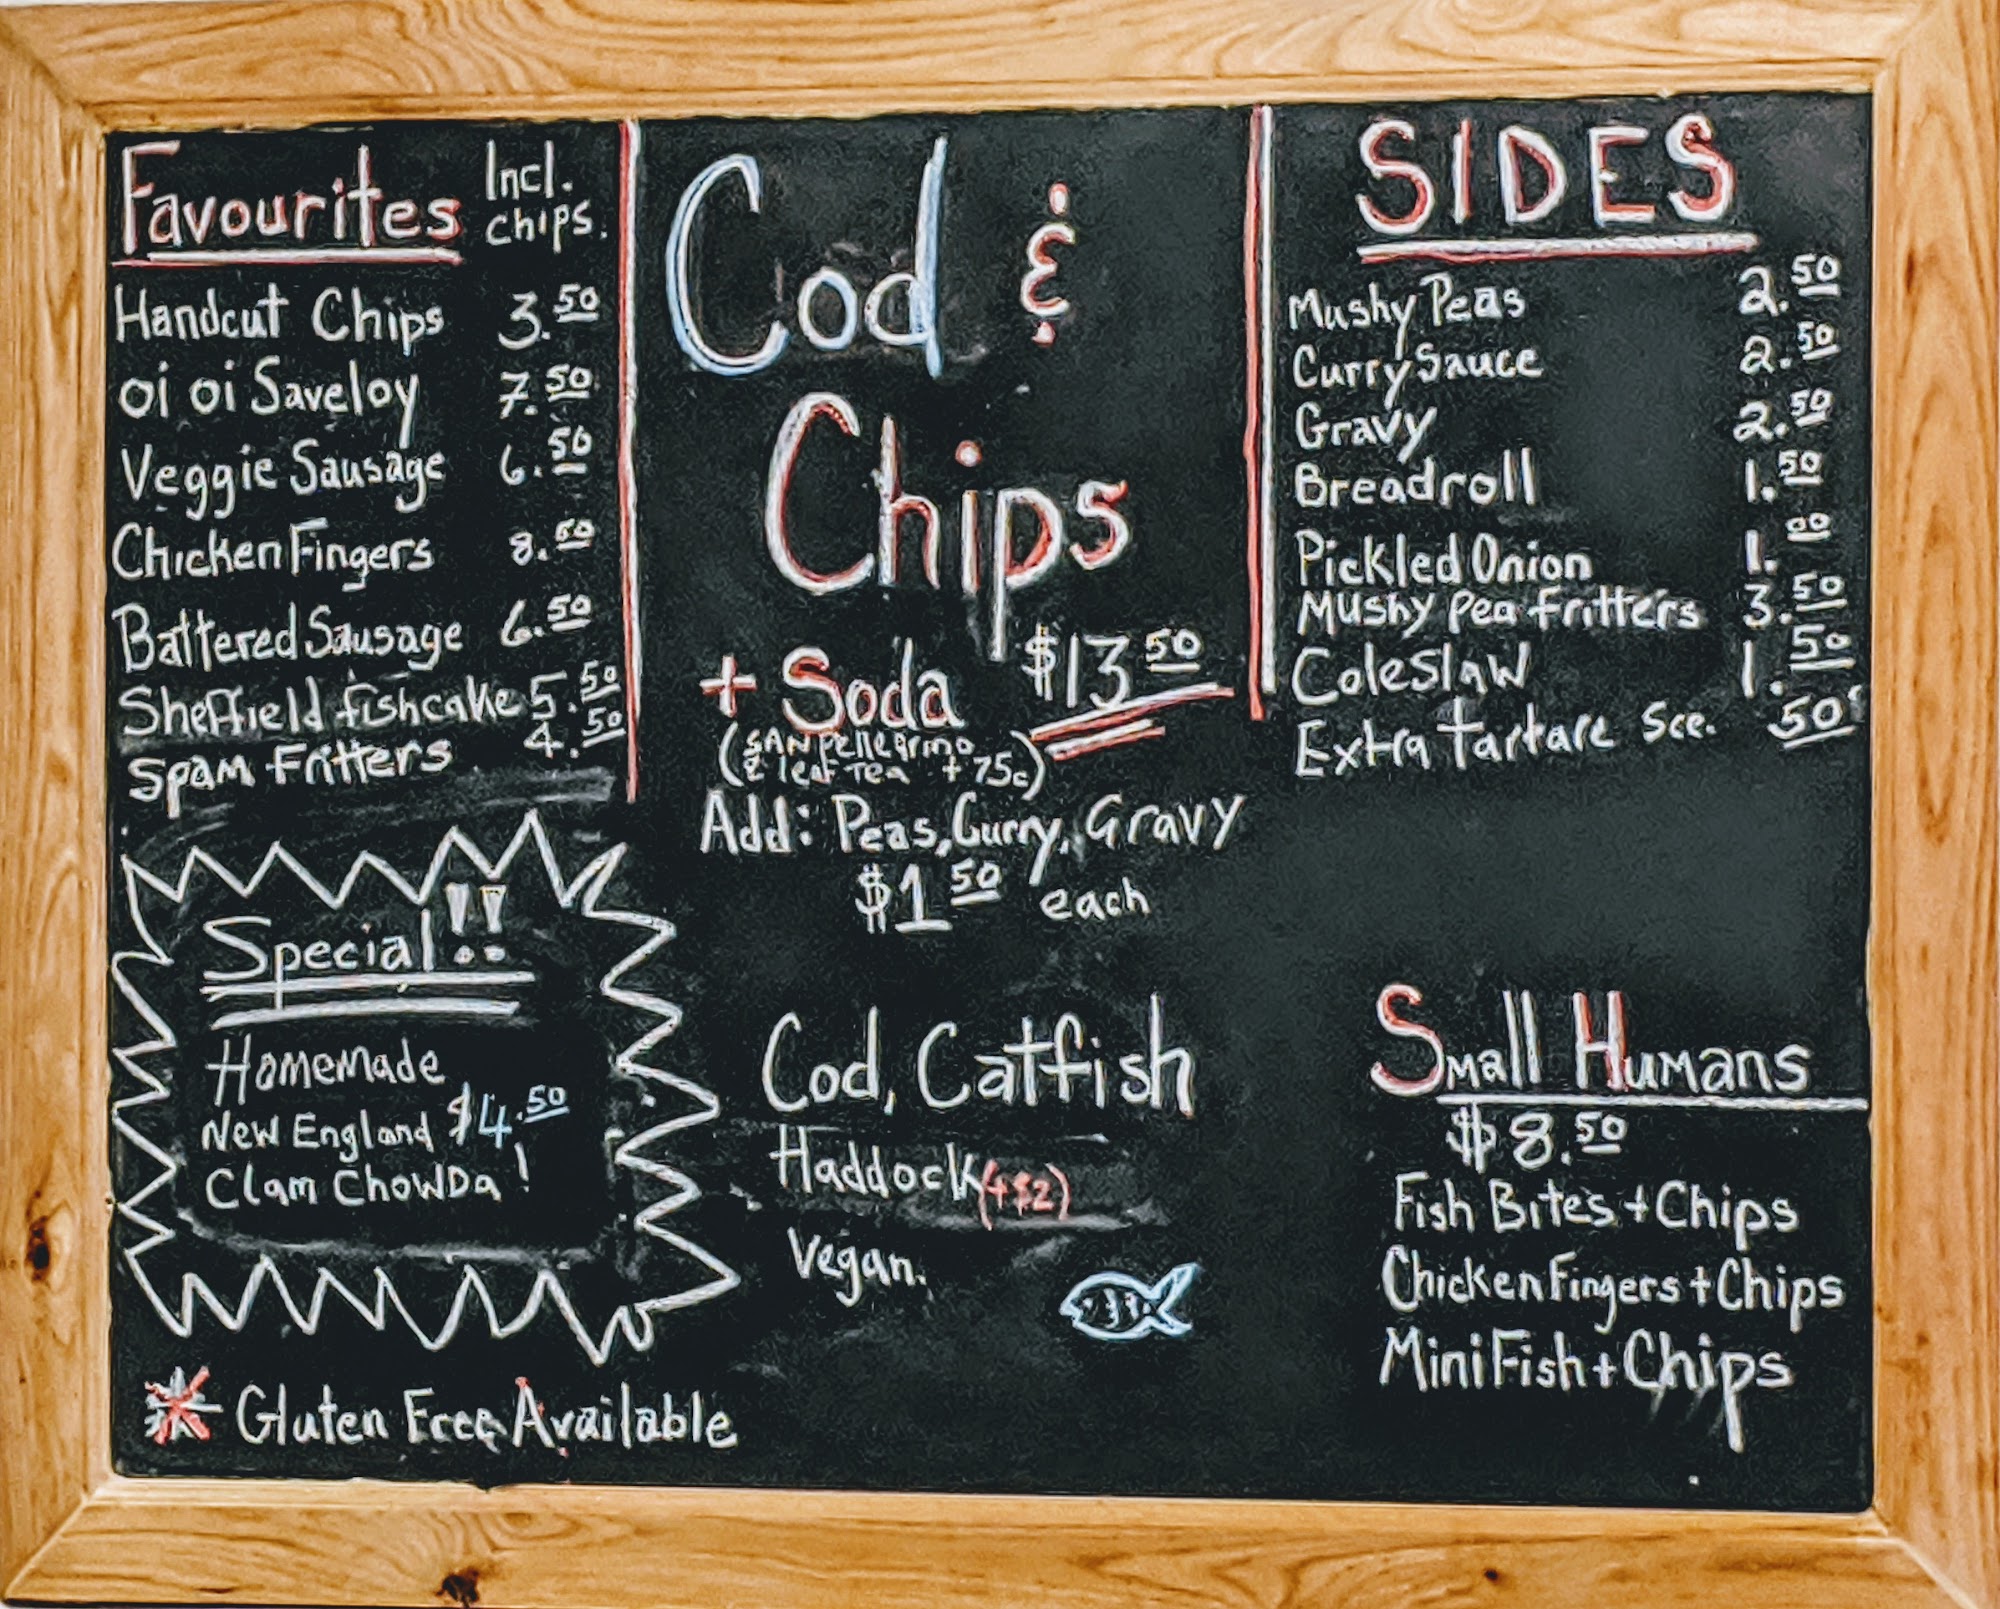 Favourites Incl. chips.
Handcut Chips 3.50
oi oi Saveloy 7.50
Veggie Sausage 6.50
Chicken Fingers 8.50
Battered Sausage 6.50
Sheffield fishcake 5.50
Spam Fritters 4.50
Special!!
Homemade
New England $4.50
Clam Chowda!
Gluten Free Available
Cod &
Chips
+ Soda $13.50
(San Pellegrino
& leaf Tea +75c)
Add: Peas, Curry, Gravy
$1.50 each
Cod, Catfish
Haddock (+$2)
Vegan.
SIDES
Mushy Peas 2.50
Curry Sauce 2.50
Gravy 2.50
Breadroll 1.50
Pickled Onion 1.00
Mushy Pea Fritters 3.50
Coleslaw 1.50
Extra Tartare Sce. 50
Small Humans
$8.50
Fish Bites + Chips
Chicken Fingers + Chips
Mini Fish + Chips